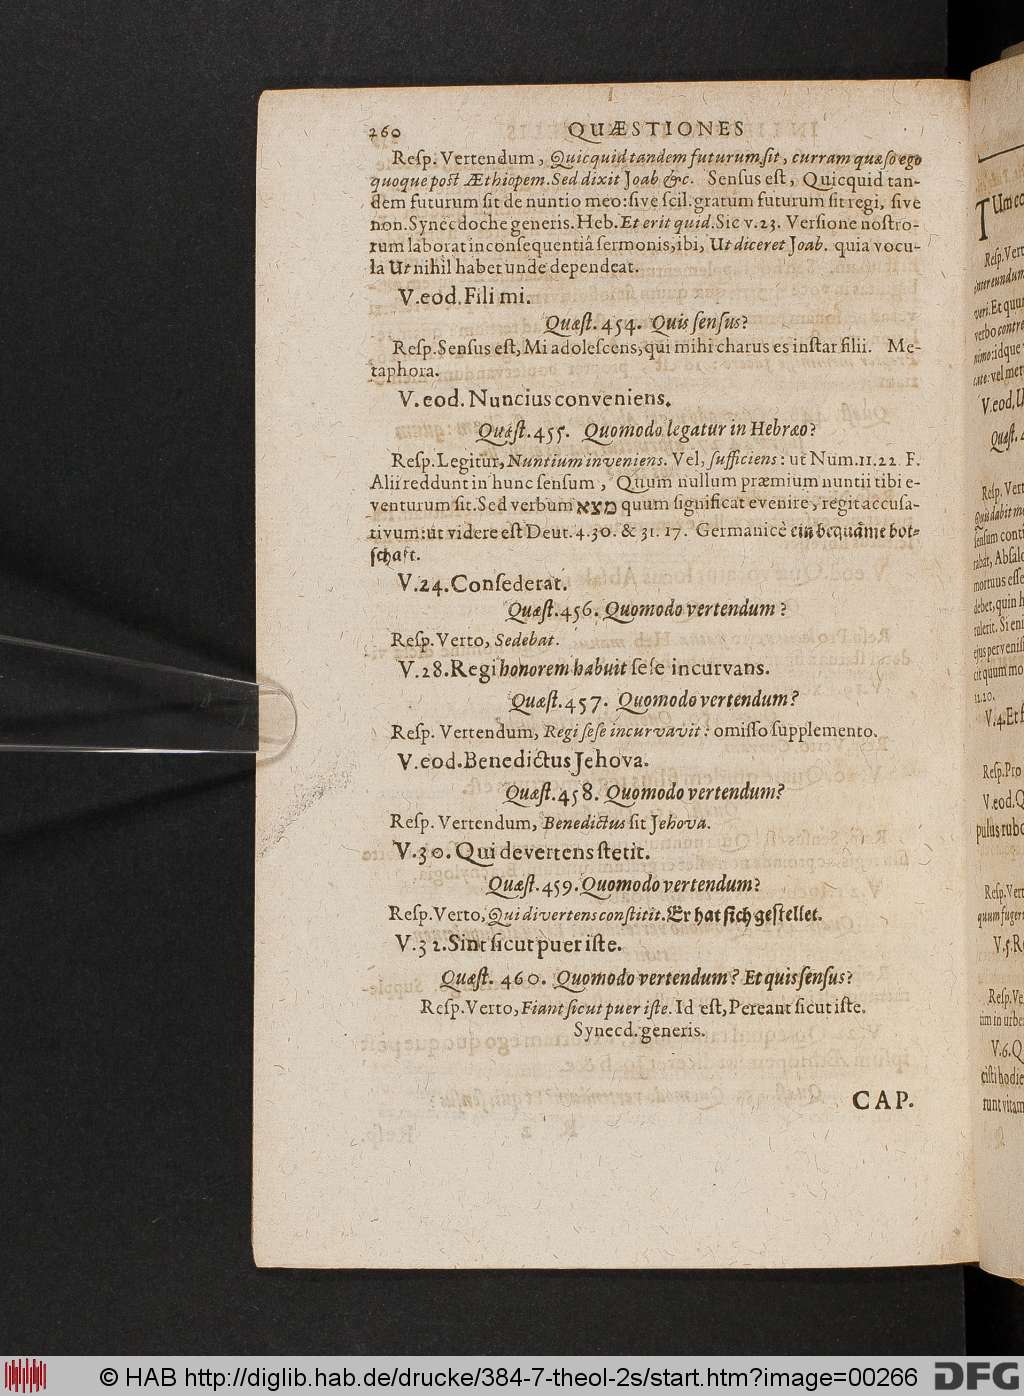 260 QUÆSTIONES
Reſp. Vertendum, Quicquid tandem futurum ſit, curram quæſo ego
quoque post Æthiopem. Sed dixit Joab &c. Senſus eſt, Quicquid tan-
dem futurum ſit de nuntio meo: ſive ſcil. gratum futurum ſit regi, ſive
non. Synecdoche generis. Heb. Et erit quid. Sic v.23. Verſione noſtro-
rum laborat inconſequentiâ ſermonis, ibi, Ut diceret Joab. quia vocu-
la Ut nihil habet unde dependeat.
V. eod. Fili mi.
Quæſt. 454. Quis ſenſus?
Reſp. Senſus eſt, Mi adoleſcens, qui mihi charus es inſtar filii. Me-
taphora.
V. eod. Nuncius conveniens.
Quæſt. 455. Quomodo legatur in Hebræo?
Reſp. Legitur, Nuntium inveniens. Vel, ſufficiens: ut Num. 11. 22. F.
Alii reddunt in hunc ſenſum, Quum nullum præmium nuntii tibi e-
venturum ſit. Sed verbum מצא quum ſignificat evenire, regit accuſa-
tivum: ut videre eſt Deut. 4. 30. & 31. 17. Germanicè ein bequäme bot-
ſchaft.
V. 24. Conſederat.
Quæſt. 456. Quomodo vertendum?
Reſp. Verto, Sedebat.
V. 28. Regi honorem habuit ſeſe incurvans.
Quæſt. 457. Quomodo vertendum?
Reſp. Vertendum, Regi ſeſe incurvavit: omiſſo ſupplemento.
V. eod. Benedictus Jehova.
Quæſt. 458. Quomodo vertendum?
Reſp. Vertendum, Benedictus ſit Jehova.
V. 30. Qui devertens ſtetit.
Quæſt. 459. Quomodo vertendum?
Reſp. Verto, Qui divertens conſtitit. Er hat ſich geſtellet.
V. 32. Sint ſicut puer iſte.
Quæſt. 460. Quomodo vertendum? Et quis ſenſus?
Reſp. Verto, Fiant ſicut puer iſte. Id eſt, Pereant ſicut iſte.
Synecd. generis.
CAP.
© HAB http://diglib.hab.de/drucke/384-7-theol-2s/start.htm?image=00266
DFG